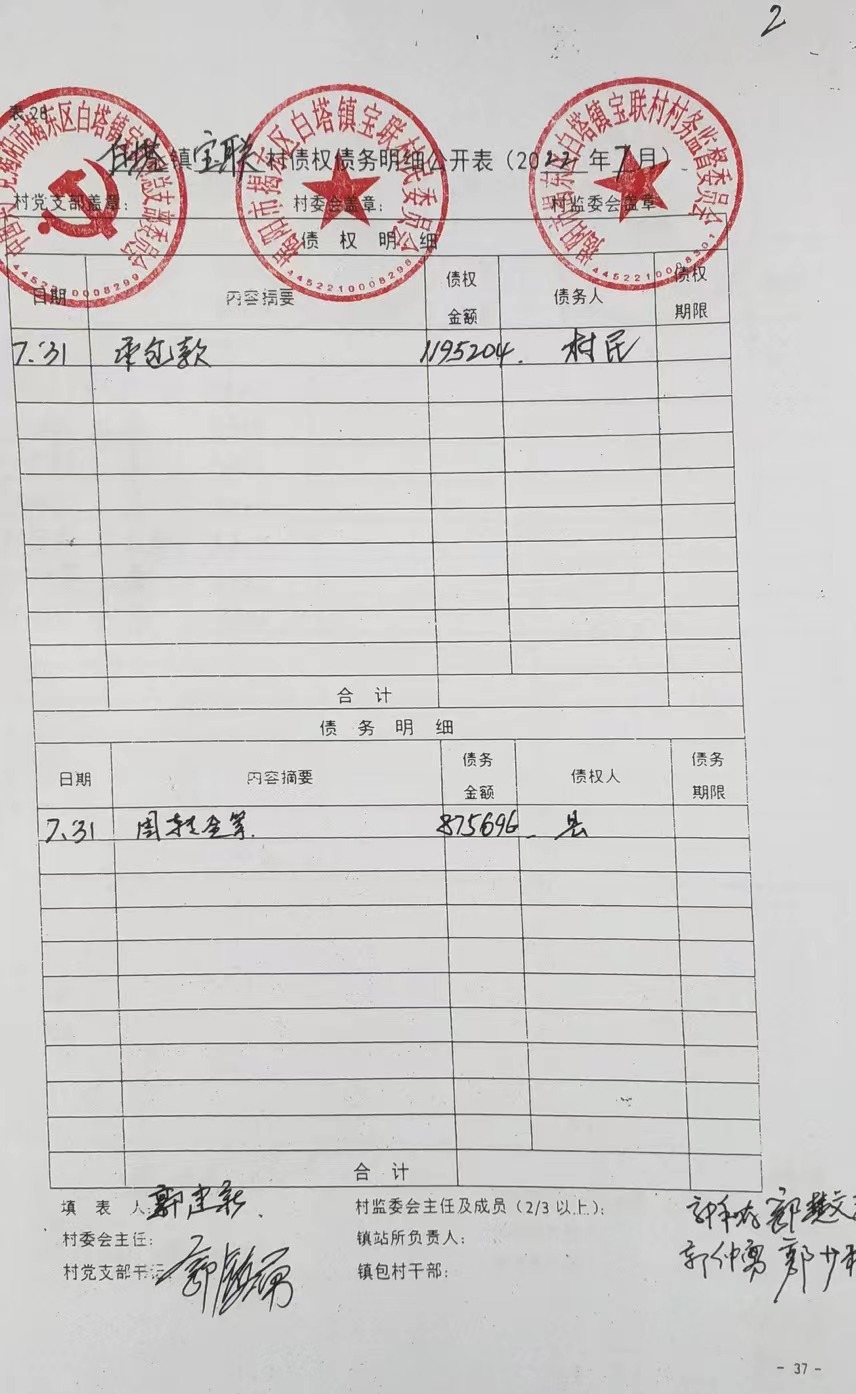 2
表28
白塔镇宝联村债权债务明细公开表（2022年7月）
村党支部盖章： 村委会盖章： 村监委会盖章
揭阳市揭东区白塔镇宝联村村民委员会
揭阳市揭东区白塔镇宝联村村务监督委员会
4452210008299
4452210008298
4452210008301
债权明细
日期 内容摘要 债权金额 债务人 债权期限
7.31 承包款 1195204. 村民
合计
债务明细
日期 内容摘要 债务金额 债权人 债务期限
7.31 周转金等. 875696 县
合计
填表人：郭建彬 村监委会主任及成员（2/3以上）：
村委会主任： 镇站所负责人：
村党支部书记： 镇包村干部：
郭仲勇
- 37 -